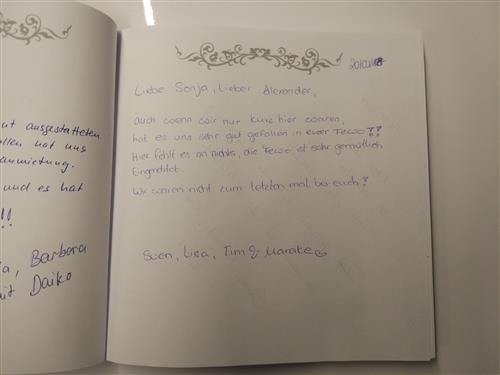 ut ausgestatteten
ollen hat uns
anmietung.
und es hat
!!
a, Barbara
it Daiko
Liebe Sonja, Lieber Alexander,
auch wenn wir nur kurz hier waren,
hat es uns sehr gut gefallen in eurer Fewo!!
Hier fehlt es an nichts, die Fewo ist sehr gemütlich
Eingerichtet.
Wir waren nicht zum letzten mal bei euch!
Sven, Lisa, Tim & Mareike